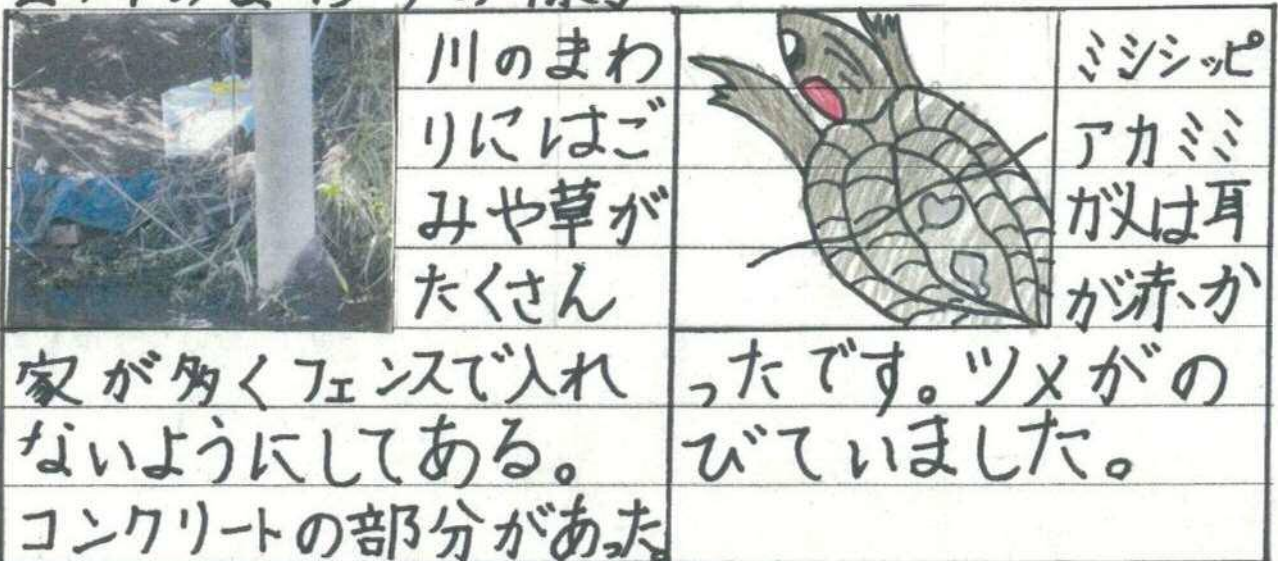 川のまわ
りにはご
みや草が
たくさん
家が多くフェンスで入れ
ないようにしてある。
コンクリートの部分があった。
ミシシッピ
アカミミ
ガメは耳
が赤か
ったです。ツメがの
びていました。